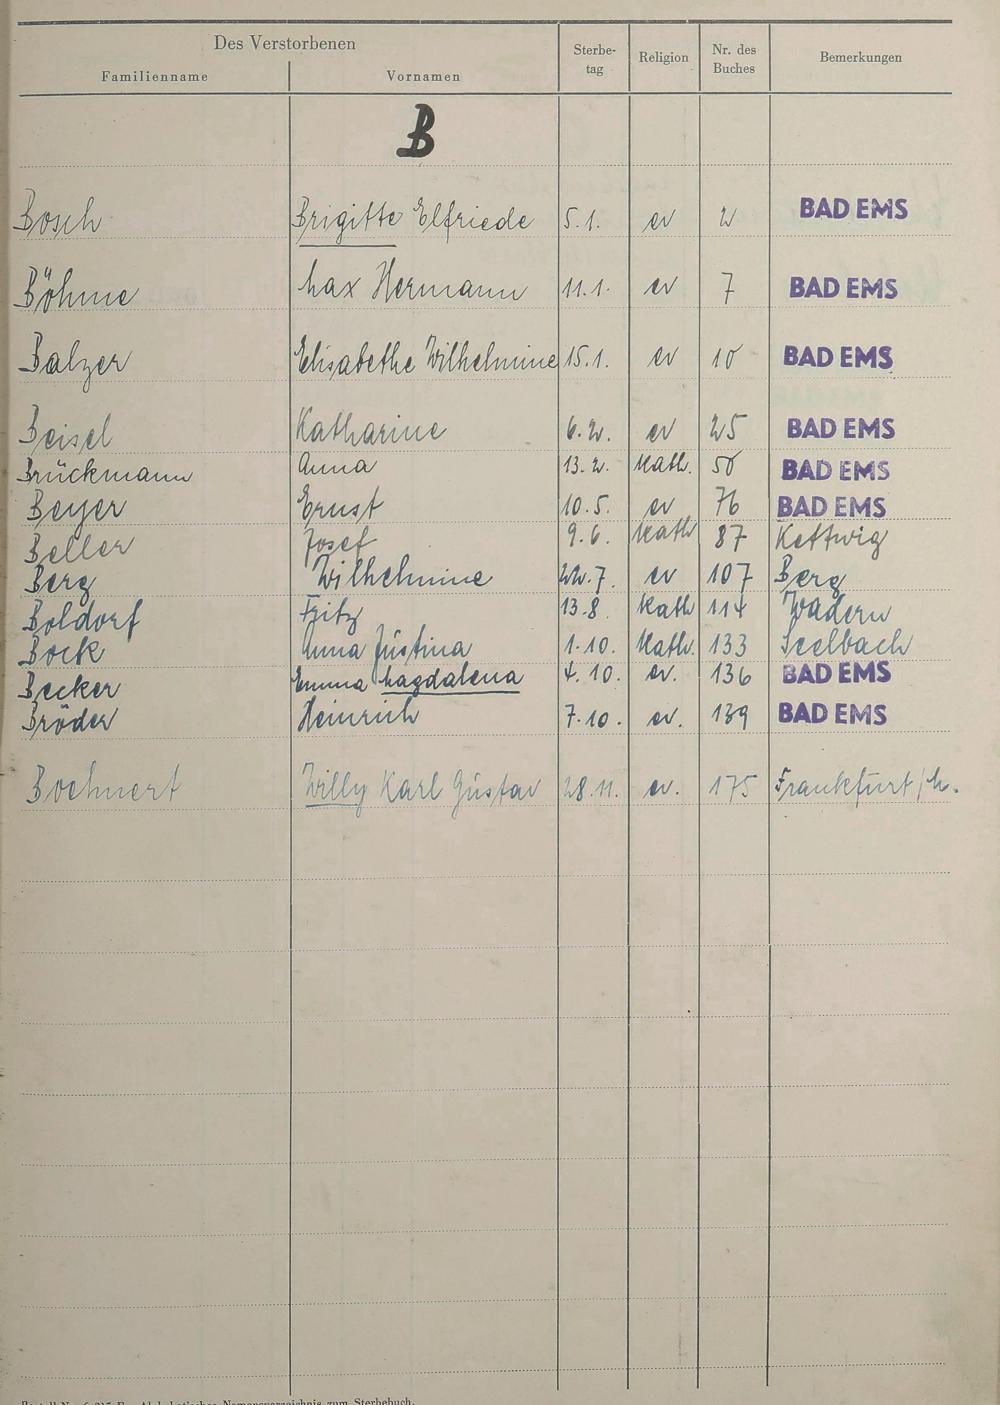 Des Verstorbenen
Familienname Vornamen Sterbe-tag Religion Nr. des Buches Bemerkungen
B
Bosch Brigitte Elfriede 5.1. ev 2 BAD EMS
Böhme Max Hermann 11.1. ev 7 BAD EMS
Balzer Elisabethe Wilhelmine 15.1. ev 10 BAD EMS
Beisel Katharine 6.2. ev 25 BAD EMS
Brückmann Anna 13.2. Kath. 50 BAD EMS
Beyer Ernst 10.5. ev 76 BAD EMS
Beller Josef 9.6. Kath 87 Kettwig
Berg Wilhelmine 22.7. ev 107 Berg
Boldorf Fritz 13.8. Kath 114 Wadern
Bock Anna Justina 1.10. Kath. 133 Seelbach
Becker Emma Magdalena 4.10. ev. 136 BAD EMS
Bröder Heinrich 7.10. ev. 139 BAD EMS
Boehnert Willy Karl Gustav 28.11. ev. 175 Frankfurt/M.
Alphabetisches Namensverzeichnis zum Sterbebuch.